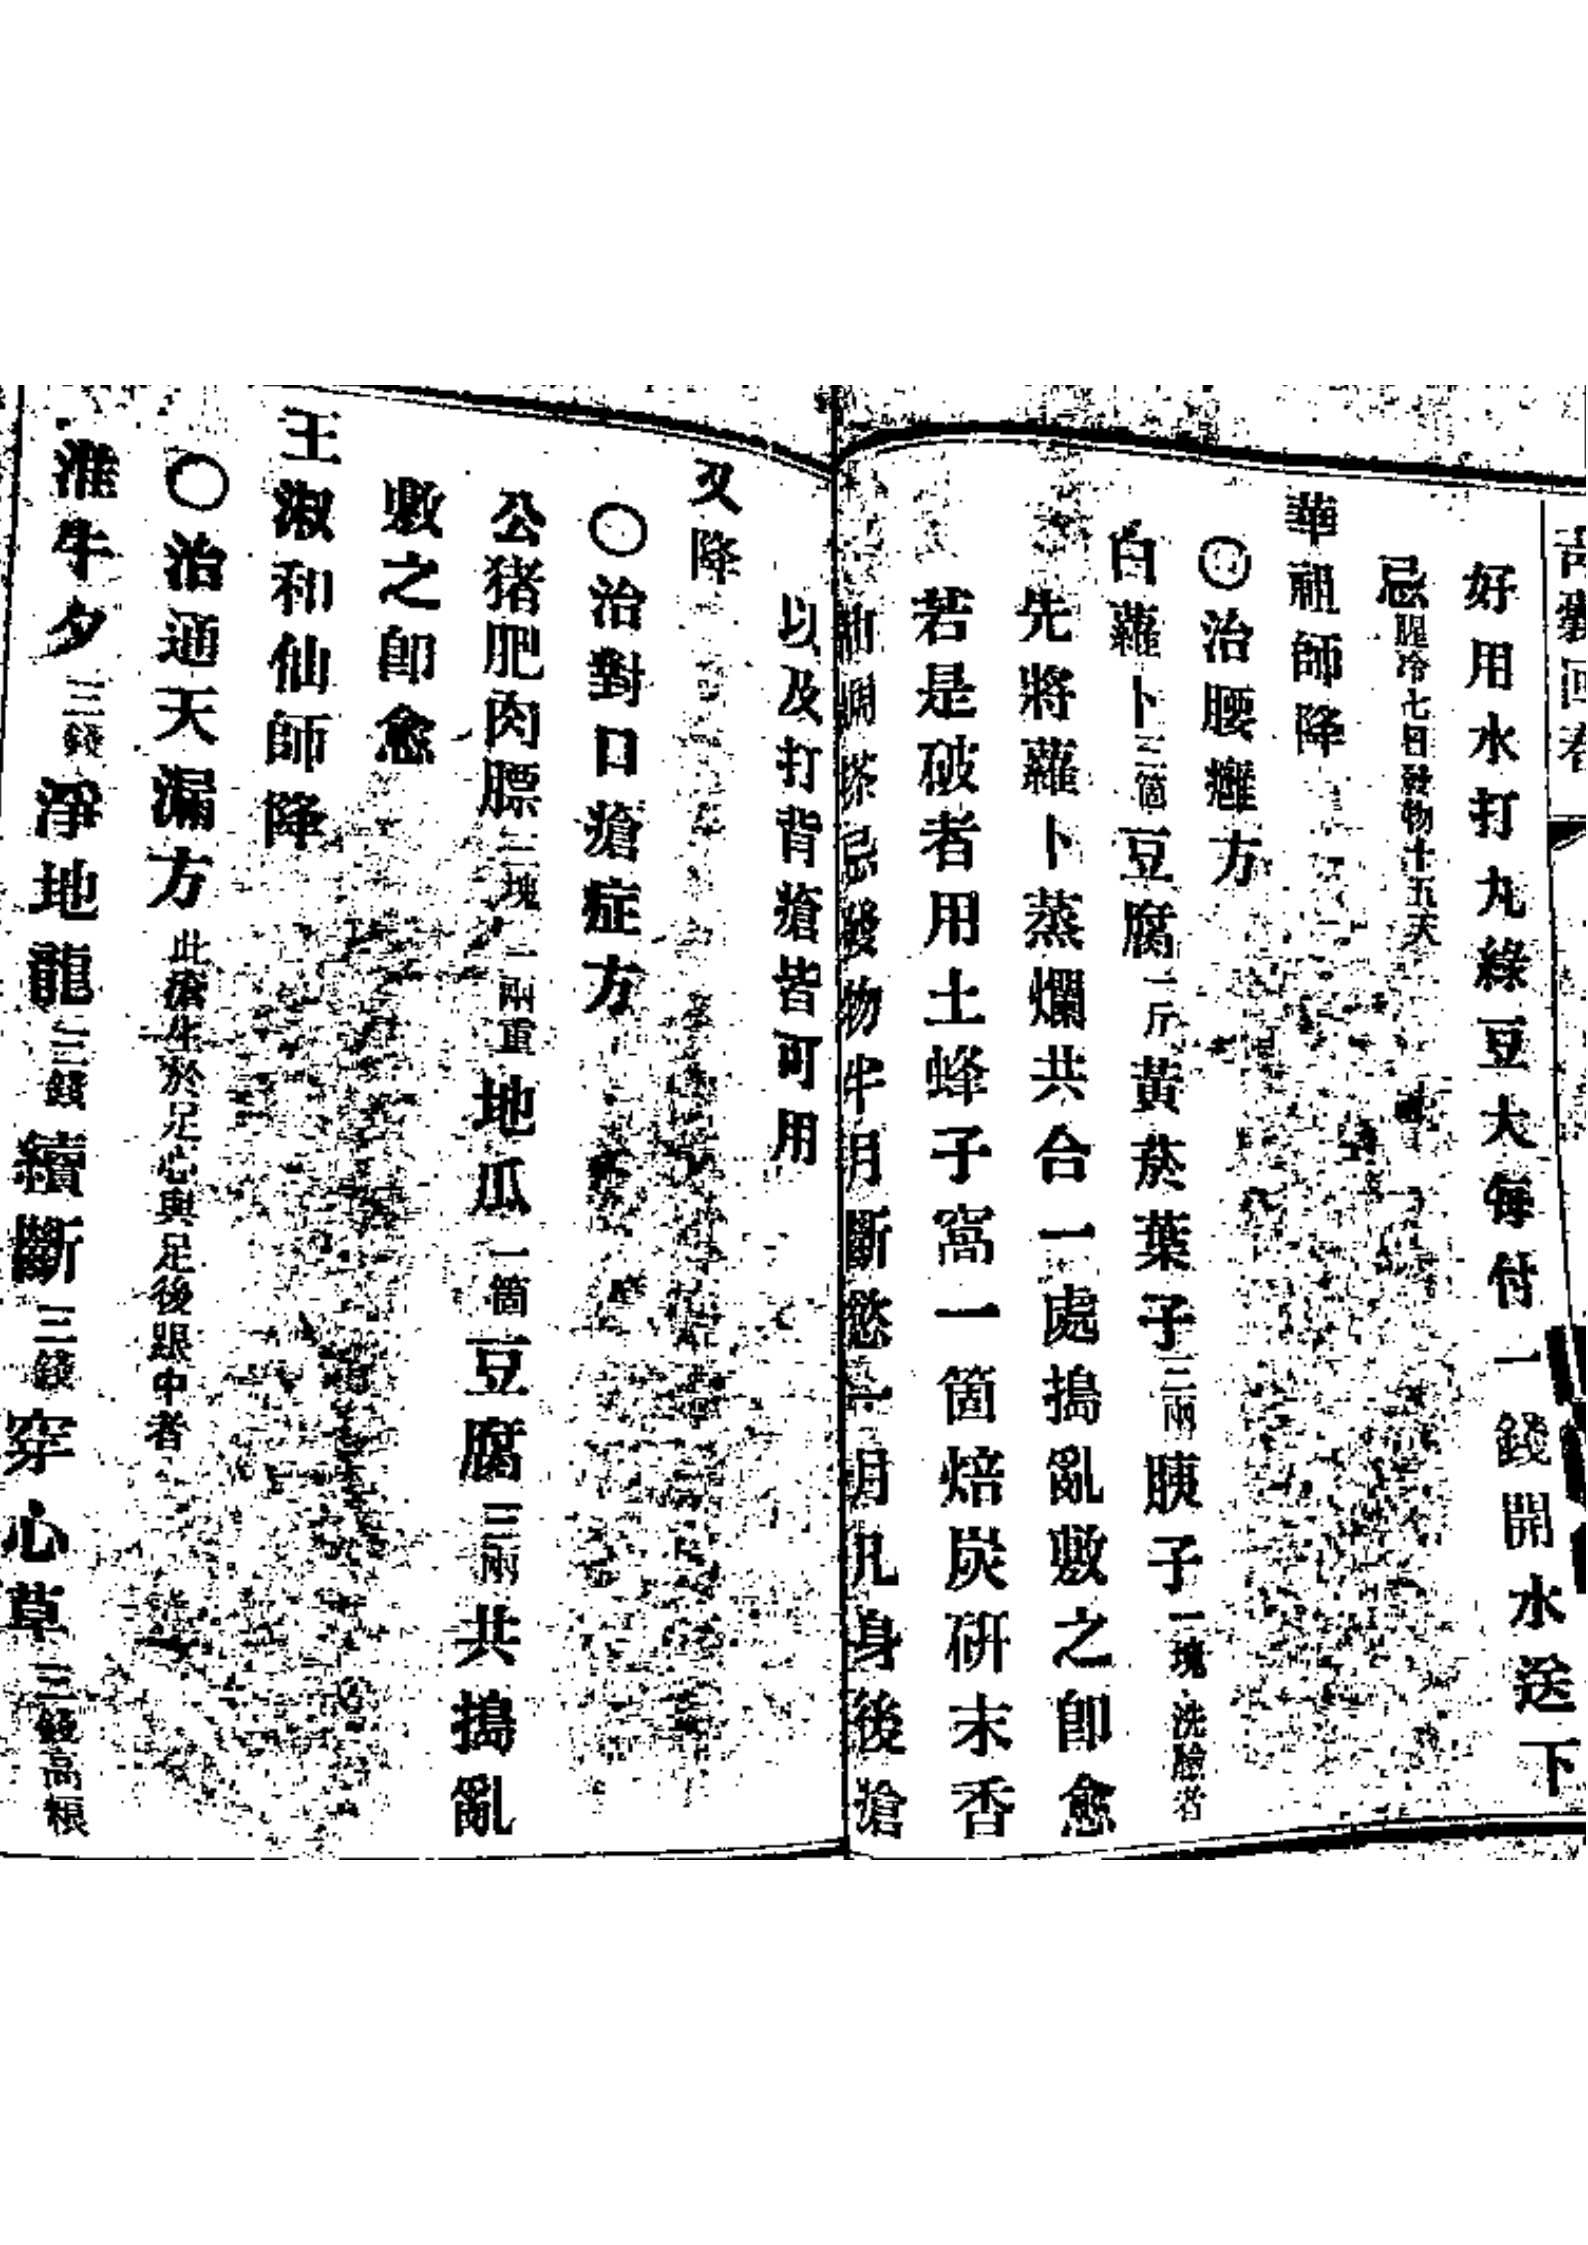 青囊回春
好用水打丸綠豆大每付一錢開水送下
忌腥冷七日發物十五天
華祖師降
〇治腰癰方
白蘿卜三箇豆腐一斤黃菸葉子三兩胰子一塊洗臉者
先將蘿卜蒸爛共合一處搗亂敷之卽愈
若是破者用土蜂子窩一箇焙炭研末香
油調搽忌發物半月斷慾一月凡身後瘡
以及打背瘡皆可用
又降
〇治對口瘡症方
公猪肥肉膘二塊一兩重地瓜一箇豆腐三兩共搗亂
敷之卽愈
王淑和仙師降
〇治通天漏方此瘡生於足心與足後跟中者
淮牛夕三錢淨地龍三錢續斷三錢穿心草三錢高根